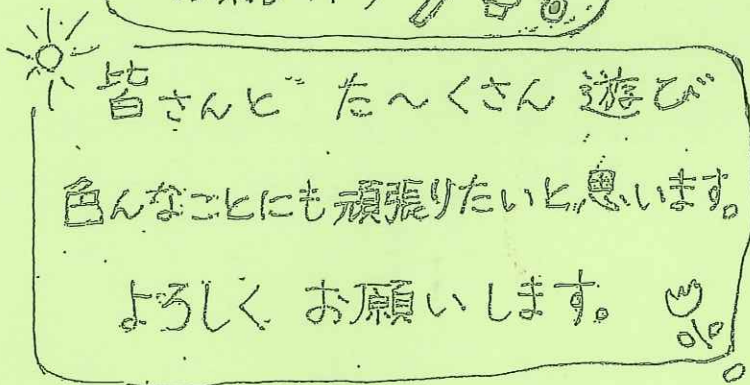 皆さんと た〜くさん 遊び
色んなことにも頑張りたいと思います。
よろしく お願いします。